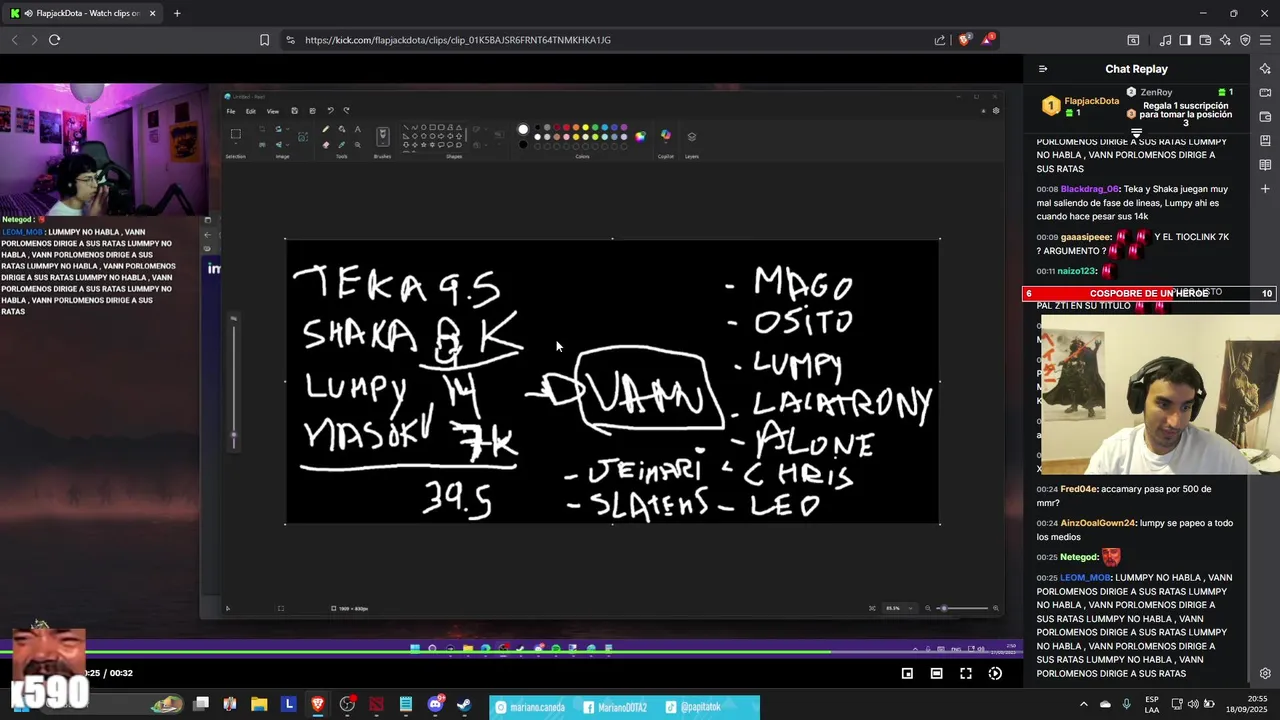 FlapjackDota - Watch clips on
https://kick.com/flapjackdota/clips/clip_01K5BAJSR6FRNT64TNMKHKA1JG
Untitled - Paint
File Edit View
Selection Image Tools Brushes Shapes Colors Copilot Layers
Netegod :
LEOM_MOB: LUMMPY NO HABLA , VANN
PORLOMENOS DIRIGE A SUS RATAS LUMMPY NO
HABLA , VANN PORLOMENOS DIRIGE A SUS
RATAS LUMMPY NO HABLA , VANN PORLOMENOS
DIRIGE A SUS RATAS LUMMPY NO HABLA , VANN
PORLOMENOS DIRIGE A SUS RATAS LUMMPY NO
HABLA , VANN PORLOMENOS DIRIGE A SUS
RATAS
TEKA 9.5
SHAKA 8 K
LUMPY 14
MASOKU 7K
39.5
VANN
- JEIMARI
- SLATEMS
- MAGO
- OSITO
- LUMPY
- LALATRONY
- ALONE
- CHRIS
- LEO
85.5%
Chat Replay
1 FlapjackDota
1
2 ZenRoy 1
3 Regala 1 suscripción
para tomar la posición
3
PORLOMENOS DIRIGE A SUS RATAS LUMMPY
NO HABLA , VANN PORLOMENOS DIRIGE A
SUS RATAS
00:08 Blackdrag_06: Teka y Shaka juegan muy
mal saliendo de fase de lineas, Lumpy ahi es
cuando hace pesar sus 14k
00:09 gaaasipeee: Y EL TIOCLINK 7K
? ARGUMENTO ?
00:11 naizo123:
6 COSPOBRE DE UN HÉROE 10
PAL ZTI EN SU TITULO
00:24 Fred04e: accamary pasa por 500 de
mmr?
00:24 AinzOoalGown24: lumpy se papeo a todo
los medios
00:25 Netegod:
00:25 LEOM_MOB: LUMMPY NO HABLA , VANN
PORLOMENOS DIRIGE A SUS RATAS LUMMPY
NO HABLA , VANN PORLOMENOS DIRIGE A
SUS RATAS LUMMPY NO HABLA , VANN
PORLOMENOS DIRIGE A SUS RATAS LUMMPY
NO HABLA , VANN PORLOMENOS DIRIGE A
SUS RATAS LUMMPY NO HABLA , VANN
PORLOMENOS DIRIGE A SUS RATAS
:25 / 00:32
x590
mariano.caneda MarianoDOTA2 @papitatok
ESP
LAA
20:55
18/09/2025